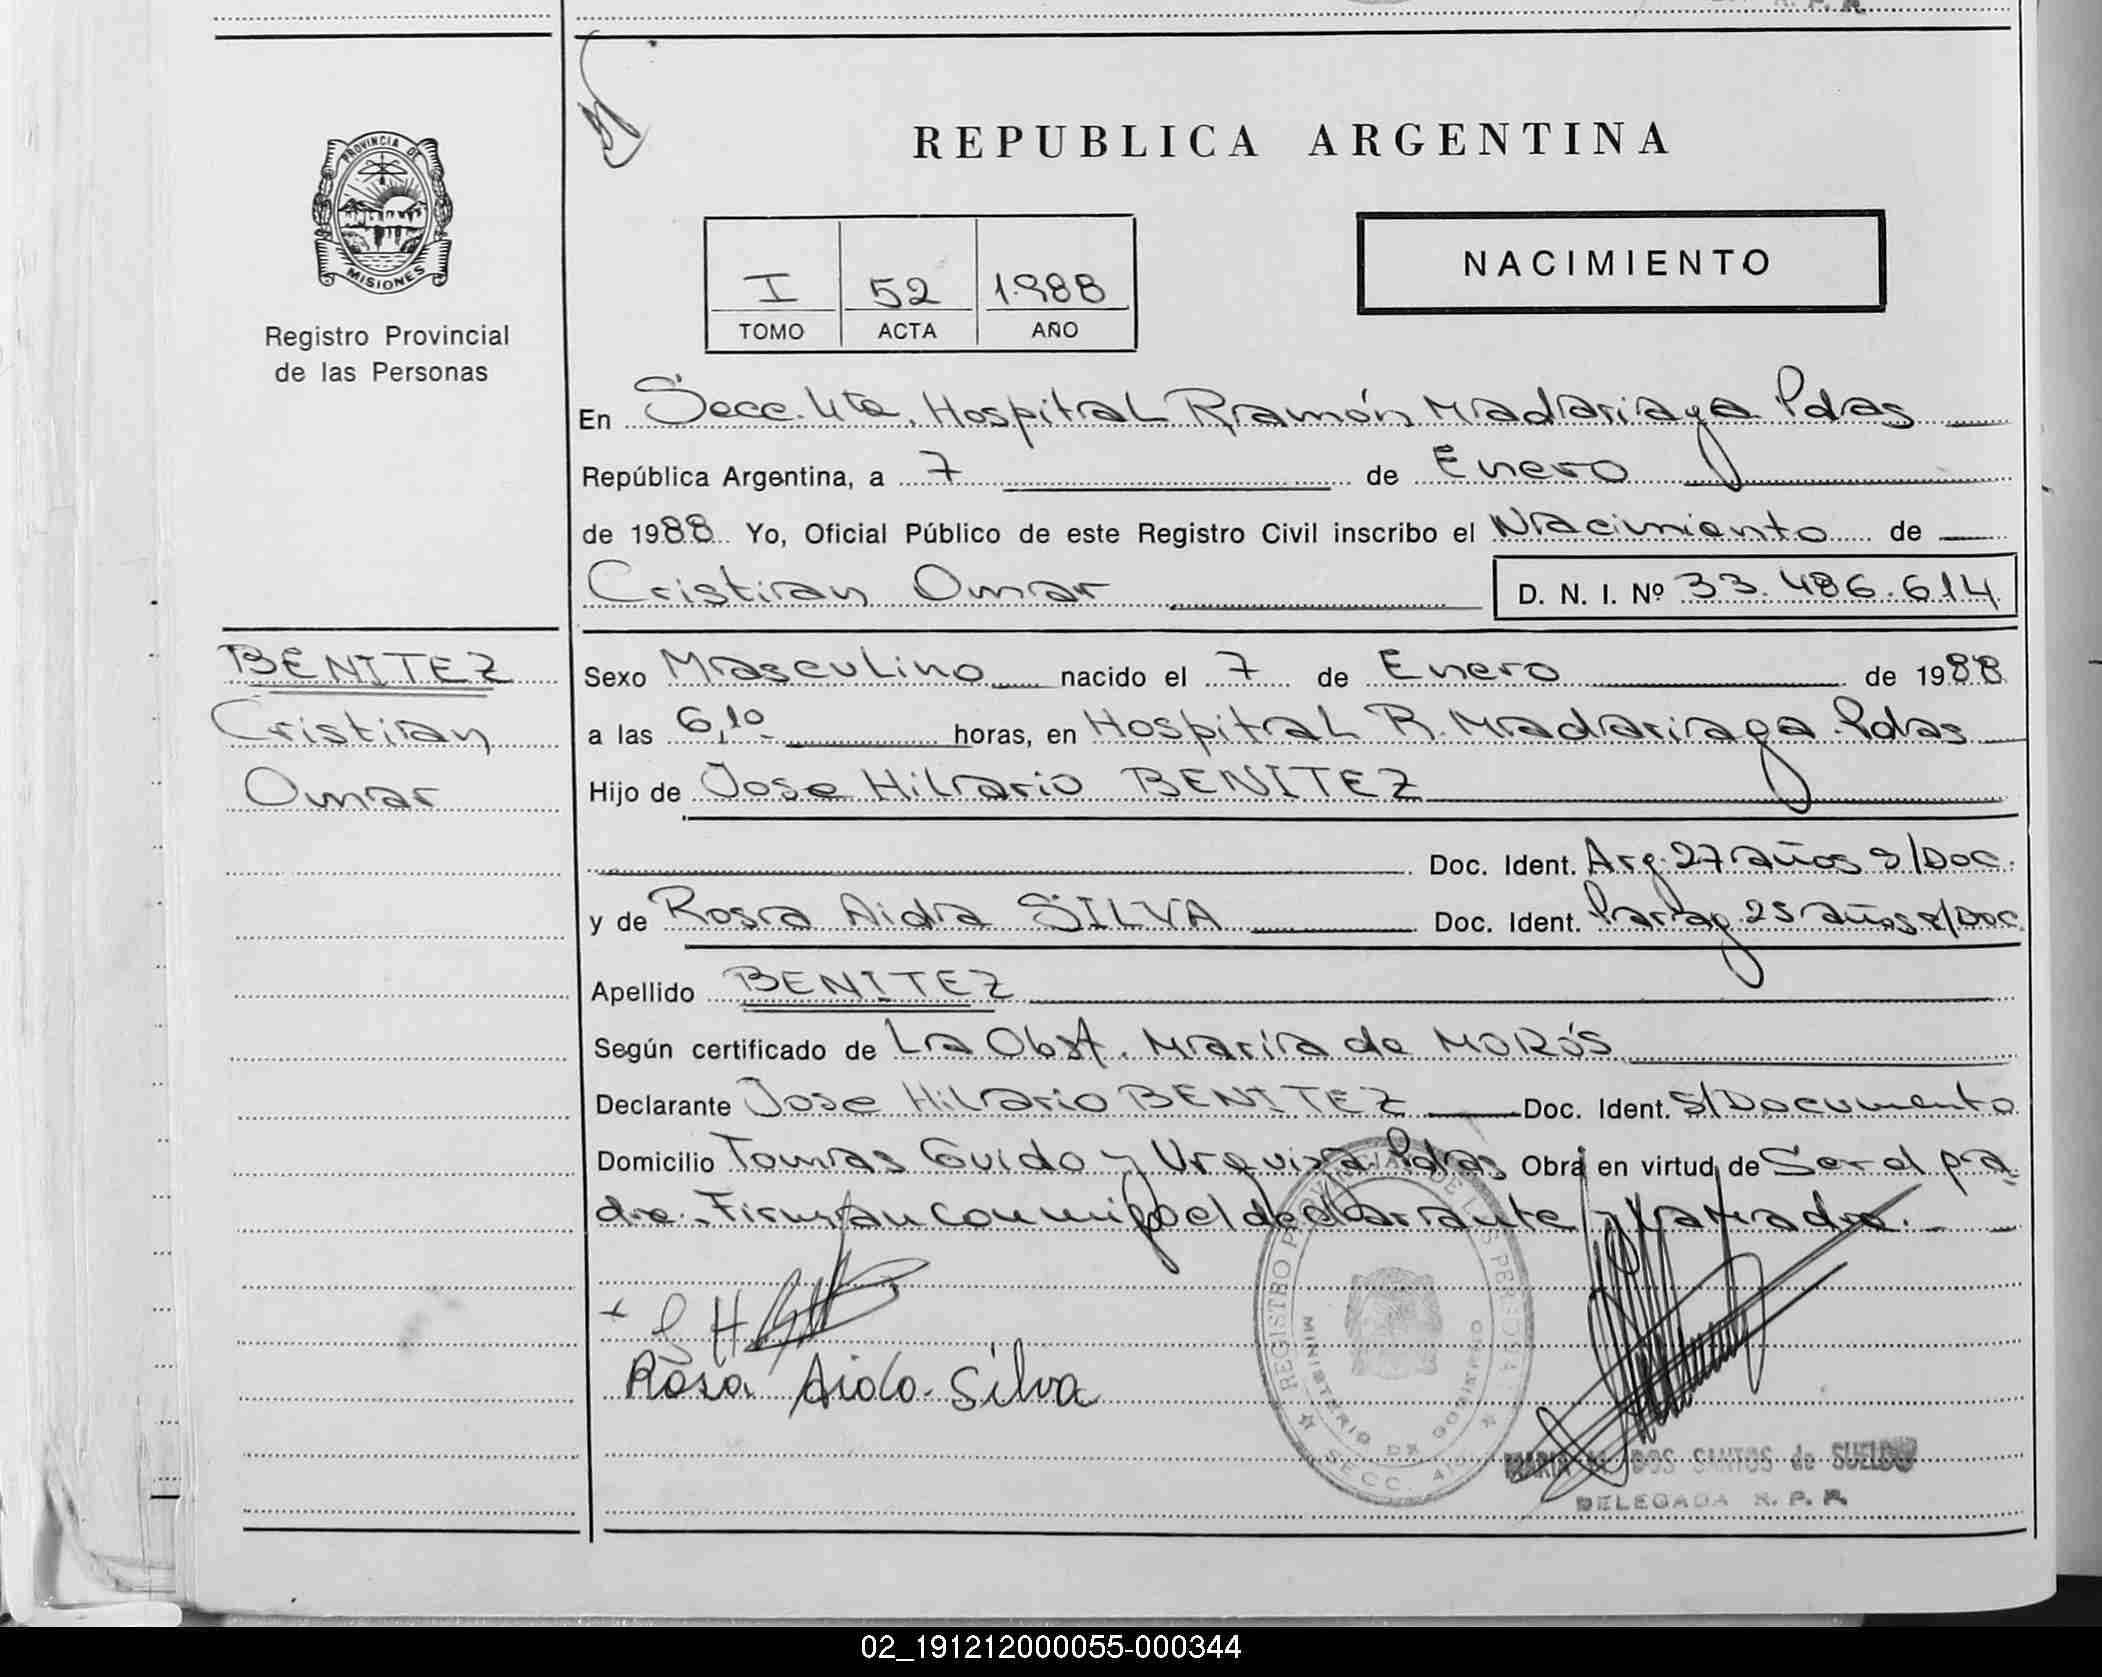 REPUBLICA ARGENTINA
PROVINCIA DE
MISIONES
Registro Provincial
de las Personas
I 52 1988
TOMO ACTA AÑO
NACIMIENTO
En Secc. 4ta. Hospital Ramón Madariaga Pdas
República Argentina, a 7 de Enero
de 1988 Yo, Oficial Público de este Registro Civil inscribo el Nacimiento de
Cristian Omar D. N. I. Nº 33.486.614
BENITEZ
Cristian
Omar
Sexo Masculino nacido el 7 de Enero de 1988
a las 6,10 horas, en Hospital R. Madariaga Pdas
Hijo de Jose Hilario BENITEZ
Doc. Ident. Arg. 27 años s/Doc.
y de Rosa Aida SILVA Doc. Ident. Parag. 25 años s/Doc
Apellido BENITEZ
Según certificado de La Obst. María de MORÓS
Declarante Jose Hilario BENITEZ Doc. Ident. S/Documento
Domicilio Tomas Guido y Urquiza Pdas Obra en virtud de Ser el pa
dre. Firman conmigo el declarante y la Madre.
Rosa Aida Silva
REGISTRO PROVINCIAL DE LAS PERSONAS
MINISTERIO DE GOBIERNO
SECC. 4
MARIA DOS SANTOS de SUELDO
DELEGADA R. P. P.
02_191212000055-000344